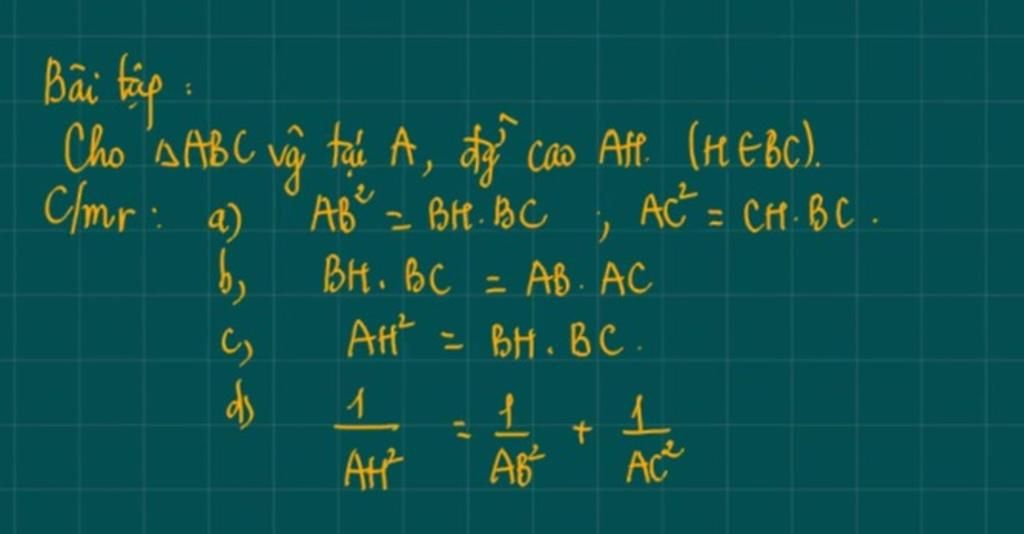 Bài tập :
Cho ΔABC vg tại A, đg cao AH. (H ∈ BC).
C/mr : a) AB² = BH.BC ; AC² = CH.BC.
b, BH.BC = AB.AC
c, AH² = BH.BC.
d) 1/AH² = 1/AB² + 1/AC²